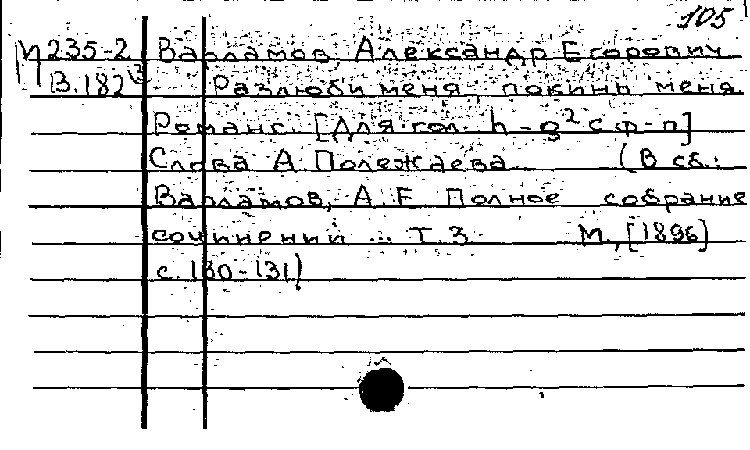 105
М 235-2 Варламов, Александр Егорович
В.182 Разлюби меня, покинь меня
Романс. [Для гол. h-g² с ф-п]
Слова А. Полежаева (В сб.:
Варламов, А. Е. Полное собрание
сочинений ... Т. 3. М., [1896]
с. 130-131)